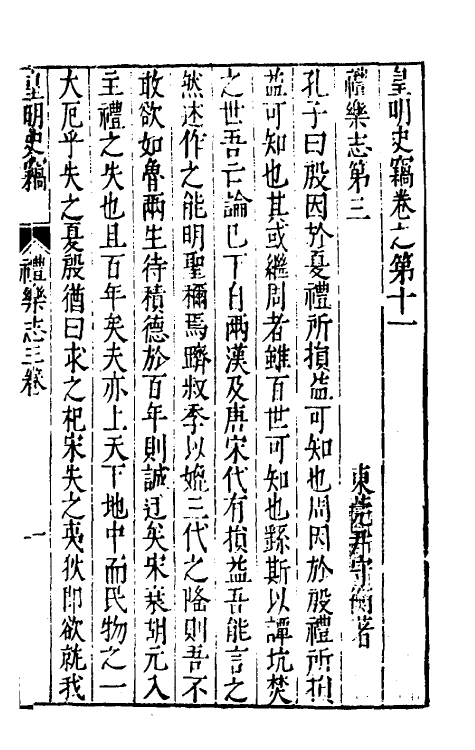 皇明史竊卷之第十一
禮樂志第三
東莞尹守衡著
孔子曰殷因於夏禮所損益可知也周因於殷禮所損
益可知也其或繼周者雖百世可知也繇斯以譚坑焚
之世吾亡論巳下自兩漢及唐宋代有損益吾能言之
然述作之能明聖稱焉躋叔季以媲三代之隆則吾不
敢欲如魯兩生待積德於百年則誠迂矣宋衰胡元入
主禮之失也且百年矣夫亦上天下地中而民物之一
大厄乎失之夏殷猶曰求之杞宋失之夷狄即欲就我
皇明史竊
禮樂志三卷
一